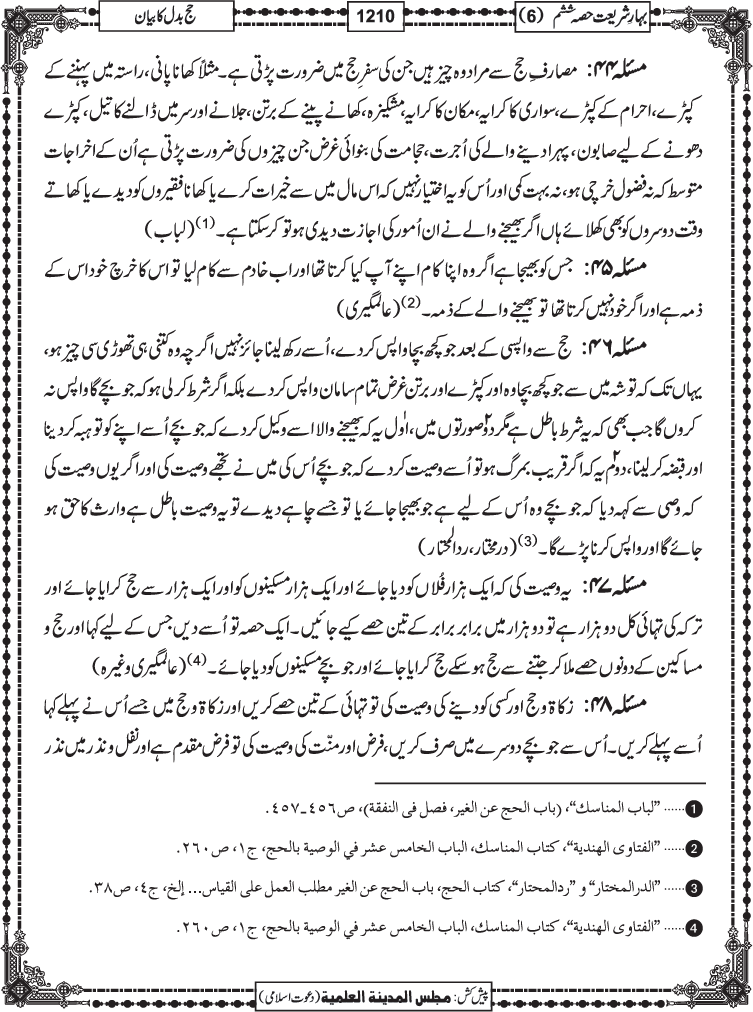 بہارِ شریعت حصہ ششم (6)
1210
حج بدل کا بیان
مسئلہ ۴۴: مصارفِ حج سے مراد وہ چیزیں ہیں جن کی سفرِ حج میں ضرورت پڑتی ہے۔ مثلاً کھانا پانی، راستہ میں پہننے کے
کپڑے، احرام کے کپڑے، سواری کا کرایہ، مکان کا کرایہ، مشکیزہ، کھانے پینے کے برتن، جلانے اور سر میں ڈالنے کا تیل، کپڑے
دھونے کے لیے صابون، پہرا دینے والے کی اُجرت، حجامت کی بنوائی غرض جن چیزوں کی ضرورت پڑتی ہے اُن کے اخراجات
متوسط کہ نہ فضول خرچی ہو، نہ بہت کمی اور اُس کو یہ اختیار نہیں کہ اس مال میں سے خیرات کرے یا کھانا فقیروں کو دیدے یا کھاتے
وقت دوسروں کو بھی کھلائے ہاں اگر بھیجنے والے نے ان اُمور کی اجازت دیدی ہو تو کر سکتا ہے۔ (1) (لباب)
مسئلہ ۴۵: جس کو بھیجا ہے اگر وہ اپنا کام اپنے آپ کیا کرتا تھا اور اب خادم سے کام لیا تو اس کا خرچ خود اس کے
ذمہ ہے اور اگر خود نہیں کرتا تھا تو بھیجنے والے کے ذمہ۔ (2) (عالمگیری)
مسئلہ ۴۶: حج سے واپسی کے بعد جو کچھ بچا واپس کر دے، اُسے رکھ لینا جائز نہیں اگرچہ وہ کتنی ہی تھوڑی سی چیز ہو،
یہاں تک کہ توشہ میں سے جو کچھ بچا وہ اور کپڑے اور برتن غرض تمام سامان واپس کر دے بلکہ اگر شرط کر لی ہو کہ جو بچے گا واپس نہ
کروں گا جب بھی کہ یہ شرط باطل ہے مگر دو۲ صورتوں میں، اوّل یہ کہ بھیجنے والا اسے وکیل کر دے کہ جو بچے اُسے اپنے کو تو ہبہ کر دینا
اور قبضہ کر لینا، دوم۲ یہ کہ اگر قریب بمرگ ہو تو اُسے وصیت کر دے کہ جو بچے اُس کی میں نے تجھے وصیت کی اور اگر یوں وصیت کی
کہ وصی سے کہہ دیا کہ جو بچے وہ اُس کے لیے ہے جو بھیجا جائے یا تو جسے چاہے دیدے تو یہ وصیت باطل ہے وارث کا حق ہو
جائے گا اور واپس کرنا پڑے گا۔ (3) (درمختار، ردالمحتار)
مسئلہ ۴۷: یہ وصیت کی کہ ایک ہزار فُلاں کو دیا جائے اور ایک ہزار مسکینوں کو اور ایک ہزار سے حج کرایا جائے اور
ترکہ کی تہائی کل دو ہزار ہے تو دو ہزار میں برابر برابر کے تین حصے کیے جائیں۔ ایک حصہ تو اُسے دیں جس کے لیے کہا اور حج و
مساکین کے دونوں حصے ملا کر جتنے سے حج ہو سکے حج کرایا جائے اور جو بچے مسکینوں کو دیا جائے۔ (4) (عالمگیری وغیرہ)
مسئلہ ۴۸: زکاۃ و حج اور کسی کو دینے کی وصیت کی تو تہائی کے تین حصے کریں اور زکاۃ و حج میں جسے اُس نے پہلے کہا
اُسے پہلے کریں۔ اُس سے جو بچے دوسرے میں صرف کریں، فرض اور منّت کی وصیت کی تو فرض مقدم ہے اور نفل و نذر میں نذر
1 ...... ”لباب المناسك“، (باب الحج عن الغير، فصل فى النفقة)، ص٤٥٦-٤٥٧.
2 ...... ”الفتاوى الهندية“، كتاب المناسك، الباب الخامس عشر في الوصية بالحج، ج١، ص٢٦٠.
3 ...... ”الدرالمختار“ و ”ردالمحتار“، كتاب الحج، باب الحج عن الغير مطلب العمل على القياس... إلخ، ج٤، ص٣٨.
4 ...... ”الفتاوى الهندية“، كتاب المناسك، الباب الخامس عشر في الوصية بالحج، ج١، ص٢٦٠.
پیش کش: مجلس المدينة العلمية (دعوت اسلامی)